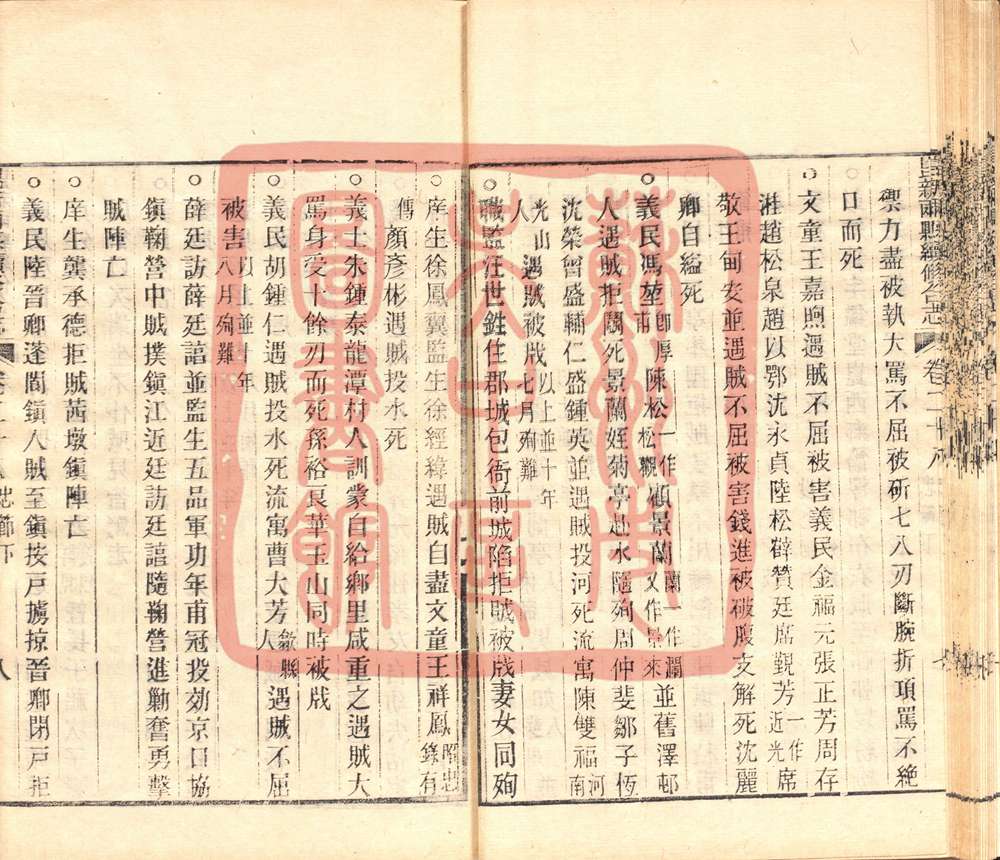 崑新兩縣續修合志 卷二十八
禦力盡被執大罵不屈被斫七八刃斷腕折項罵不絕
口而死
○文童王嘉煦遇賊不屈被害義民金福元張正芳周存
淮趙松泉趙以鄂沈永貞陸松僻贊廷席覲芳一作近光席
敬王甸安並遇賊不屈被害錢進被破腹支解死沈麗
卿自縊死
○義民馮堃即厚甫陳松一作松觀顧景蘭蘭一作瀾又作景來並舊澤邨
人遇賊拒鬭死景蘭姪菊亭赴水隨殉周仲斐鄒子恆
沈榮曾盛輔仁盛鍾英並遇賊投河死流寓陳雙福河南
光山人遇賊被戕以上並十年七月殉難
○職監汪世銈住郡城包衙前城陷拒賊被戕妻女同殉
○庠生徐鳳翼監生徐經緯遇賊自盡文童王祥鳳昭忠錄有
傳顏彥彬遇賊投水死
○義士朱鍾泰龍潭村人訓蒙自給鄉里咸重之遇賊大
罵身受十餘刃而死孫裕良華玉山同時被戕
○義民胡鍾仁遇賊投水死流寓曹大芳歙縣人遇賊不屈
被害以上並十年八月殉難
○薛廷訪薛廷諳並監生五品軍功年甫冠投効京口協
鎮鞠營中賊撲鎮江近廷訪廷諳隨鞠營進勦奮勇擊
賊陣亡
○庠生龔承德拒賊茜墩鎮陣亡
○義民陸晉卿蓬閬鎮人賊至鎮按戶擄掠晉卿閉戶拒
忠節下 八